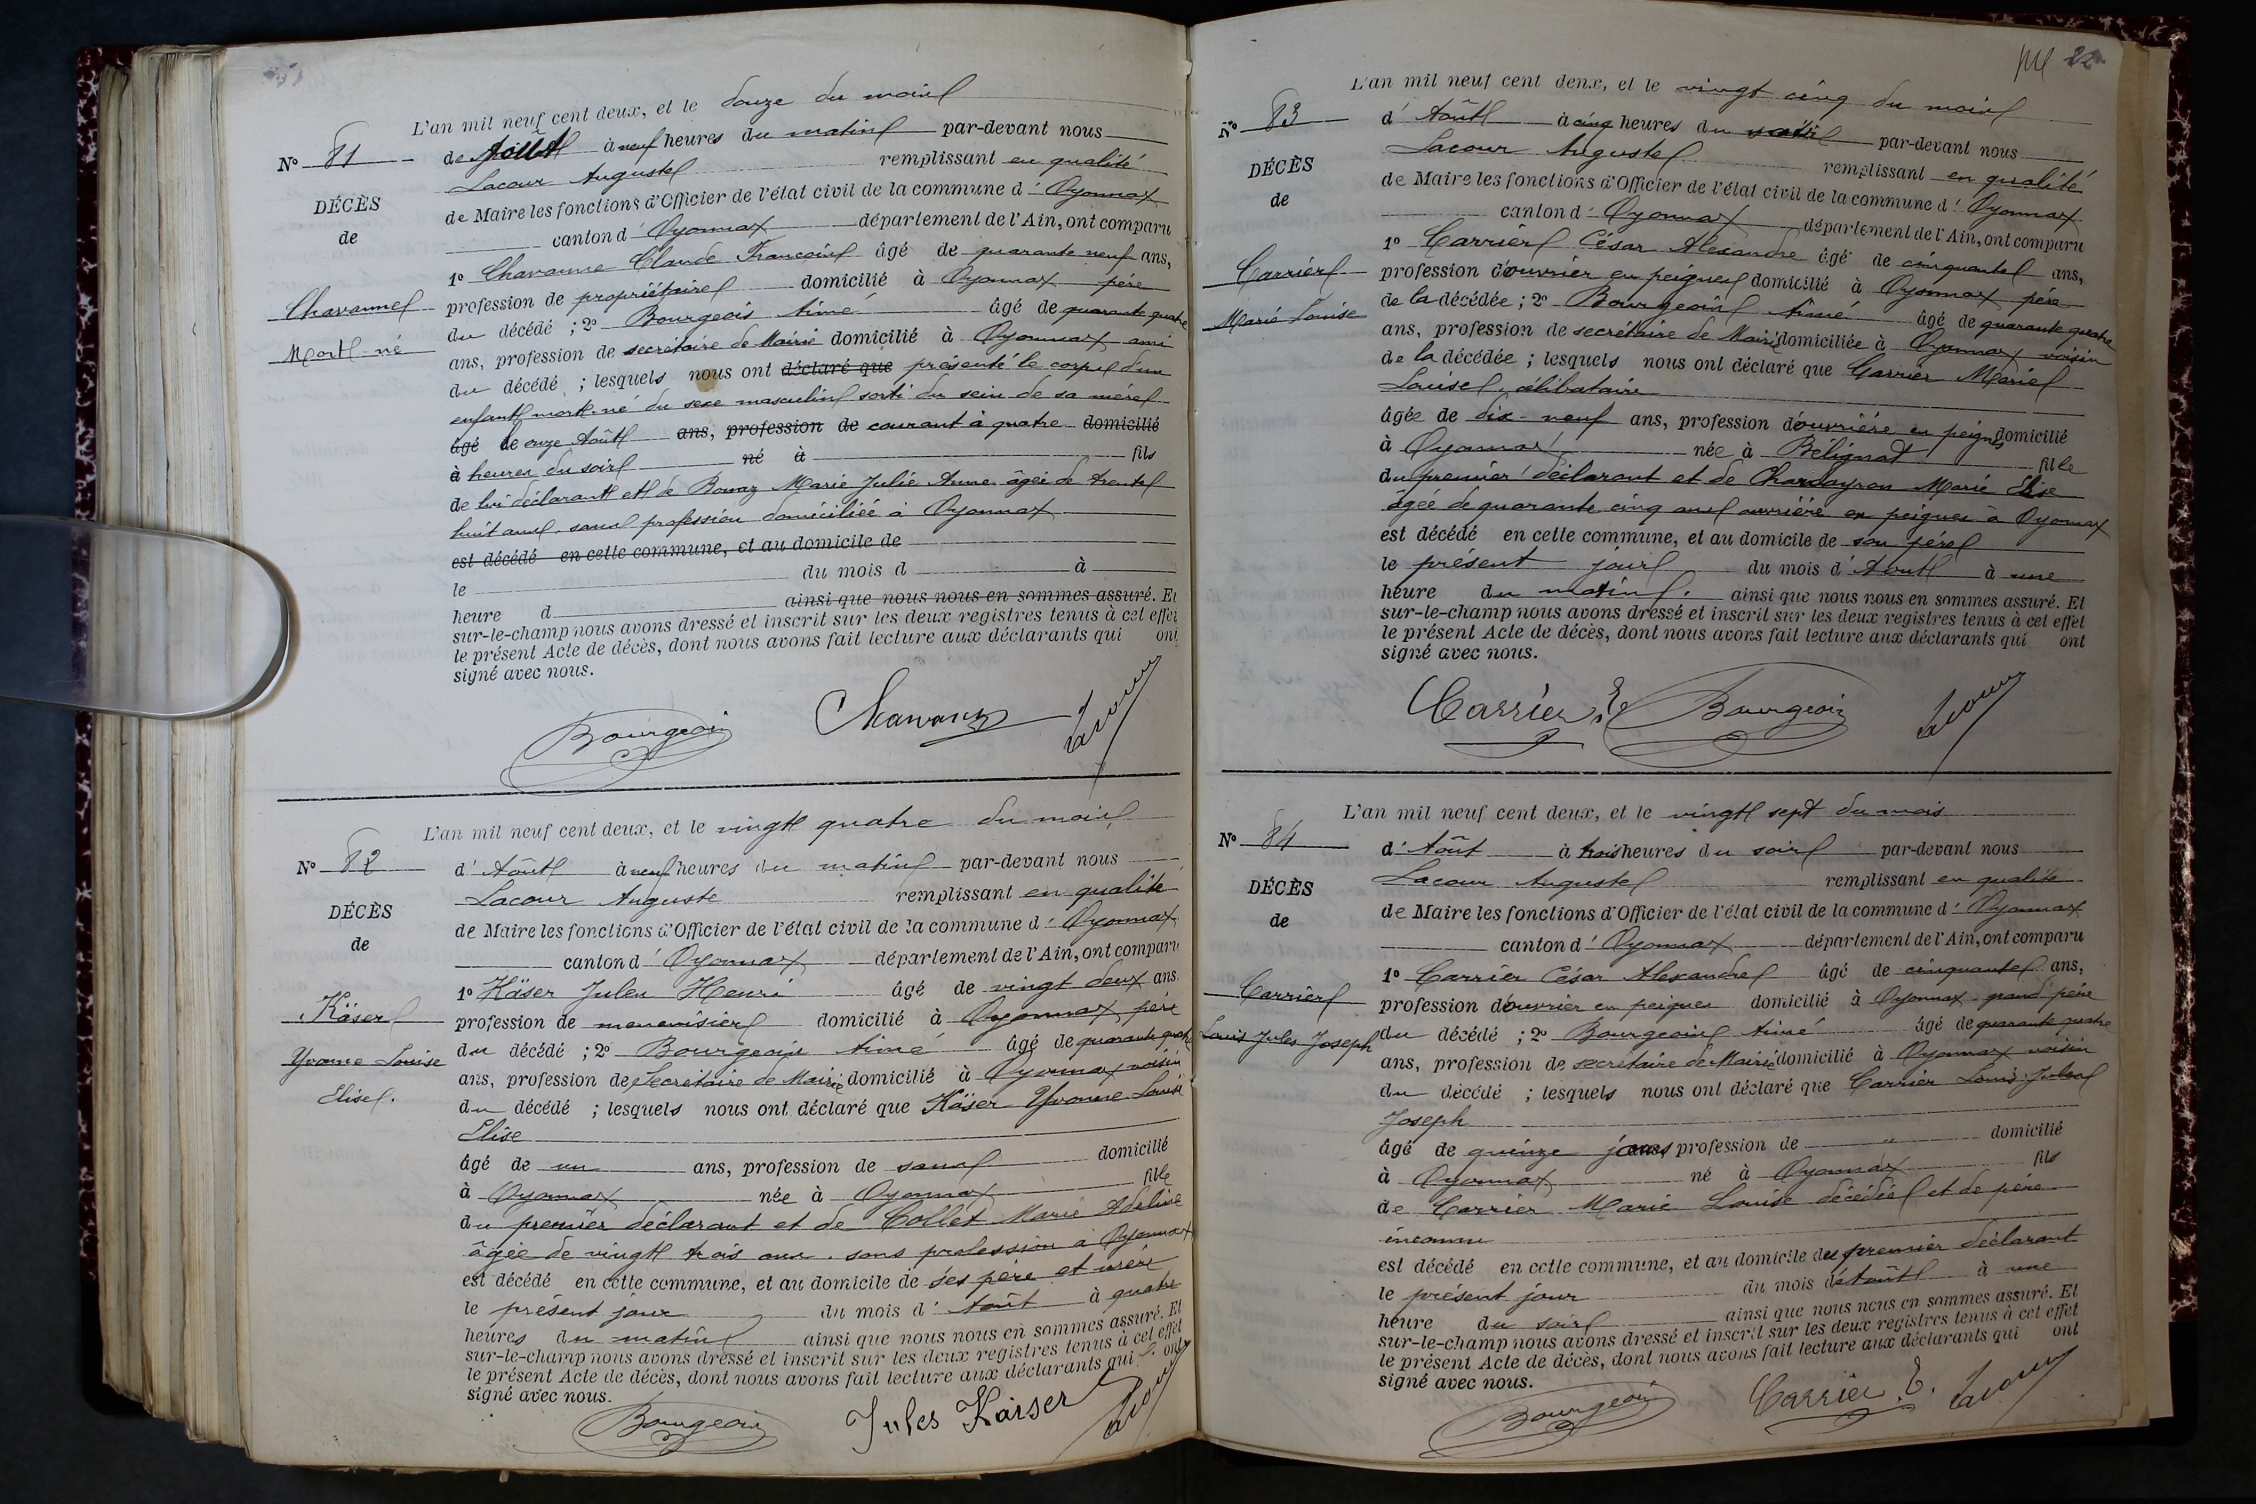 L'an mil neuf cent deux, et le douze du mois
N° 81
de à neuf heures du matin par-devant nous
Lacour Auguste remplissant en qualité
DÉCÈS
de Maire les fonctions d'Officier de l'état civil de la commune d' Oyonnax
de
canton d' Oyonnax département de l'Ain, ont comparu
1° Chavanne Claude François âgé de quarante neuf ans,
Chavanne
profession de propriétaire domicilié à Oyonnax père
du décédé ; 2° Bourgeois Aimé âgé de quarante quatre
Mort-né
ans, profession de secrétaire de Mairie domicilié à Oyonnax ami
du décédé ; lesquels nous ont déclaré que présenté le corps d'un
enfant mort-né du sexe masculin sorti du sein de sa mère
âgé de onze Août ans, profession de courant à quatre domicilié
à heures du soir né à fils
de lui déclarant et de Marie Julie Anne âgée de trente
huit ans sans profession domiciliée à Oyonnax
est décédé en cette commune, et au domicile de
le du mois d à
heure d ainsi que nous nous en sommes assuré. Et
sur-le-champ nous avons dressé et inscrit sur les deux registres tenus à cet effet
le présent Acte de décès, dont nous avons fait lecture aux déclarants qui ont
signé avec nous.
Bourgeois Lacour
L'an mil neuf cent deux, et le vingt quatre du mois
N° 82
d' Août à neuf heures du matin par-devant nous
Lacour Auguste remplissant en qualité
DÉCÈS
de Maire les fonctions d'Officier de l'état civil de la commune d' Oyonnax
de
canton d' Oyonnax département de l'Ain, ont comparu
1° Käser Jules Henri âgé de vingt deux ans
Käser
profession de menuisier domicilié à Oyonnax père
Yvonne Louise
du décédé ; 2° Bourgeois Aimé âgé de quarante quatre
Elise.
ans, profession de Secrétaire de Mairie domicilié à Oyonnax voisin
du décédé ; lesquels nous ont déclaré que Käser Yvonne Louise
Elise
âgé de un ans, profession de sans domicilié
à Oyonnax née à Oyonnax fille
du premier déclarant et de Collet Marie Adeline
âgée de vingt trois ans sans profession à Oyonnax
est décédé en cette commune, et au domicile de ses père et mère
le présent jour du mois d' Août à quatre
heures du matin ainsi que nous nous en sommes assuré. Et
sur-le-champ nous avons dressé et inscrit sur les deux registres tenus à cet effet
le présent Acte de décès, dont nous avons fait lecture aux déclarants qui ont
signé avec nous.
Bourgeois Jules Kaiser Lacour
22
L'an mil neuf cent deux, et le vingt cinq du mois
N° 83
d' Août à cinq heures du par-devant nous
Lacour Auguste remplissant en qualité
DÉCÈS
de Maire les fonctions d'Officier de l'état civil de la commune d' Oyonnax
de
canton d' Oyonnax département de l'Ain, ont comparu
1° Carrier César Alexandre âgé de cinquante ans,
Carrier
profession d'ouvrier en peignes domicilié à Oyonnax père
Marie Louise
de la décédée ; 2° Bourgeois Aimé âgé de quarante quatre
ans, profession de secrétaire de Mairie domiciliée à Oyonnax voisin
de la décédée ; lesquels nous ont déclaré que Carrier Marie
Louise, célibataire
âgée de dix-neuf ans, profession d'ouvrière en peignes domicilié
à Oyonnax née à Bélignat fille
du premier déclarant et de Marie Elise
âgée de quarante cinq ans ouvrière en peignes à Oyonnax
est décédé en cette commune, et au domicile de son père
le présent jour du mois d' Août à une
heure du matin. ainsi que nous nous en sommes assuré. Et
sur-le-champ nous avons dressé et inscrit sur les deux registres tenus à cet effet
le présent Acte de décès, dont nous avons fait lecture aux déclarants qui ont
signé avec nous.
Carrier Bourgeois Lacour
L'an mil neuf cent deux, et le vingt sept du mois
N° 84
d' Août à trois heures du soir par-devant nous
Lacour Auguste remplissant en qualité
DÉCÈS
de Maire les fonctions d'Officier de l'état civil de la commune d' Oyonnax
de
canton d' Oyonnax département de l'Ain, ont comparu
1° Carrier César Alexandre âgé de cinquante ans,
Carrier
profession d'ouvrier en peignes domicilié à Oyonnax grand père
Louis Jules Joseph
du décédé ; 2° Bourgeois Aimé âgé de quarante quatre
ans, profession de secrétaire de Mairie domicilié à Oyonnax voisin
du décédé ; lesquels nous ont déclaré que Carrier Louis Jules
Joseph
âgé de quinze jours profession de " domicilié
à Oyonnax né à Oyonnax fils
de Carrier Marie Louise décédée et de père
inconnu
est décédé en cette commune, et au domicile du premier déclarant
le présent jour du mois d'Août à une
heure du soir ainsi que nous nous en sommes assuré. Et
sur-le-champ nous avons dressé et inscrit sur les deux registres tenus à cet effet
le présent Acte de décès, dont nous avons fait lecture aux déclarants qui ont
signé avec nous.
Bourgeois Carrier Lacour